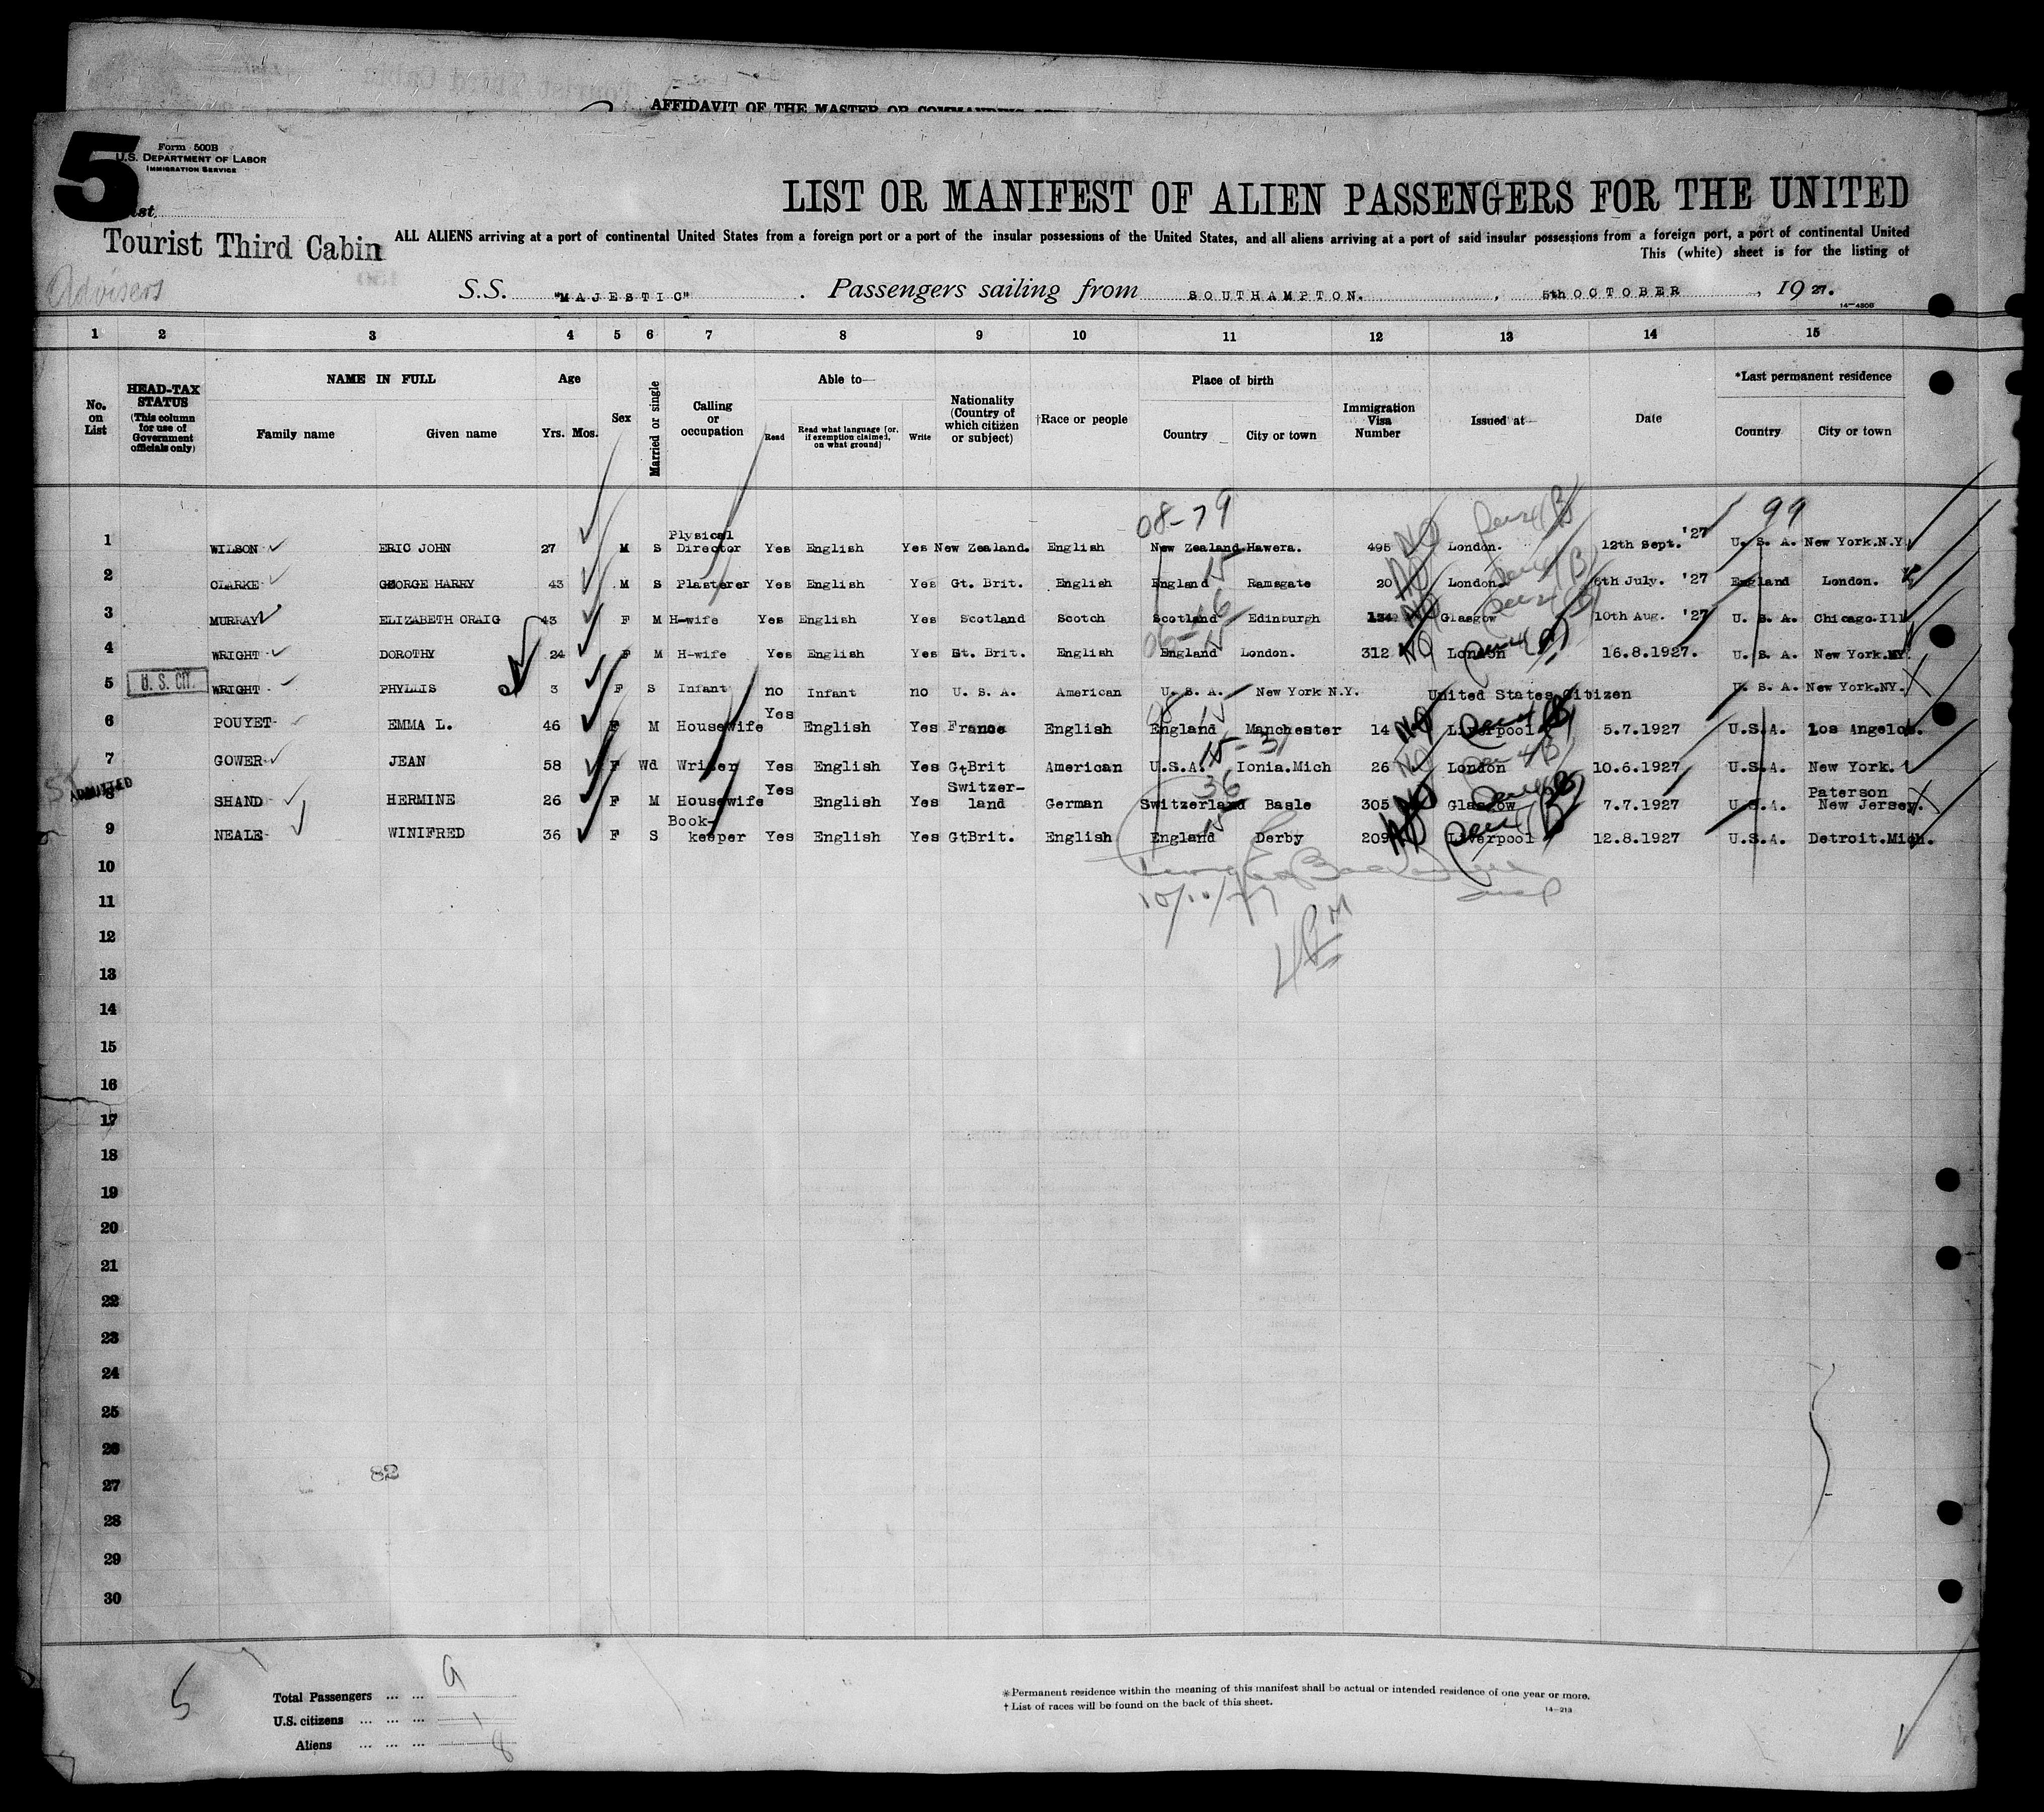 AFFIDAVIT OF THE MASTER OR COMMANDING
5
Form 500B
U.S. DEPARTMENT OF LABOR
IMMIGRATION SERVICE
List
LIST OR MANIFEST OF ALIEN PASSENGERS FOR THE UNITED
Tourist Third Cabin
ALL ALIENS arriving at a port of continental United States from a foreign port or a port of the insular possessions of the United States, and all aliens arriving at a port of said insular possessions from a foreign port, a port of continental United
This (white) sheet is for the listing of
Advisers
S.S. "MAJESTIC". Passengers sailing from SOUTHAMPTON., 5th OCTOBER, 1927.
14-450B
1 2 3 4 5 6 7 8 9 10 11 12 13 14 15
No. on List
HEAD-TAX STATUS (This column for use of Government officials only)
NAME IN FULL
Family name Given name
Age
Yrs. Mos.
Sex
Married or single
Calling or occupation
Able to—
Read
Read what language [or, if exemption claimed, on what ground]
Write
Nationality (Country of which citizen or subject)
†Race or people
Place of birth
Country City or town
Immigration Visa Number
Issued at—
Date
*Last permanent residence
Country City or town
08-79 99
1 WILSON ERIC JOHN 27 M S Plysical Director Yes English Yes New Zealand. English New Zealand. Hawera. 495 NQ London. 12th Sept. '27 U. S. A. New York.N.Y.
2 CLARKE GEORGE HARRY 43 M S Plasterer Yes English Yes Gt. Brit. English England 15 Ramsgate 20 NQ London. 6th July. '27 England London.
3 MURRAY ELIZABETH CRAIG 43 F M H-wife Yes English Yes Scotland Scotch Scotland 16 Edinburgh NQ Glasgow 10th Aug. '27 U. S. A. Chicago.Ill
4 WRIGHT DOROTHY 24 F M H-wife Yes English Yes Gt. Brit. English England 15 London. 312 NQ London 16.8.1927. U. S. A. New York.NY.
5 U. S. CIT. WRIGHT PHYLLIS 3 F S Infant no Infant no U. S. A. American U. S. A. New York N.Y. United States Citizen U. S. A. New York.NY.
6 POUYET EMMA L. 46 F M Housewife Yes English Yes France English England 15 Manchester 14 NQ Liverpool 5.7.1927 U.S.A. Los Angelos.
7 GOWER JEAN 58 F Wd Writer Yes English Yes GtBrit American U.S.A. 15-31 Ionia.Mich 26 NQ London 10.6.1927 U.S.A. New York.
ADMITTED
8 SHAND HERMINE 26 F M Housewife Yes English Yes Switzer-land German Switzerland 36 Basle 305 Glasgow 7.7.1927 U.S.A. Paterson New Jersey.
9 NEALE WINIFRED 36 F S Book-keeper Yes English Yes GtBrit. English England 15 Derby 209 Liverpool 12.8.1927 U.S.A. Detroit.Mich.
10
11
10/10/27
12
13
14
15
16
17
18
19
20
21
22
23
24
25
26
27
82
28
29
30
5
Total Passengers ... ... 9
U.S. citizens ... ... ... 1
Aliens ... ... ... 8
*Permanent residence within the meaning of this manifest shall be actual or intended residence of one year or more.
† List of races will be found on the back of this sheet.
14-213